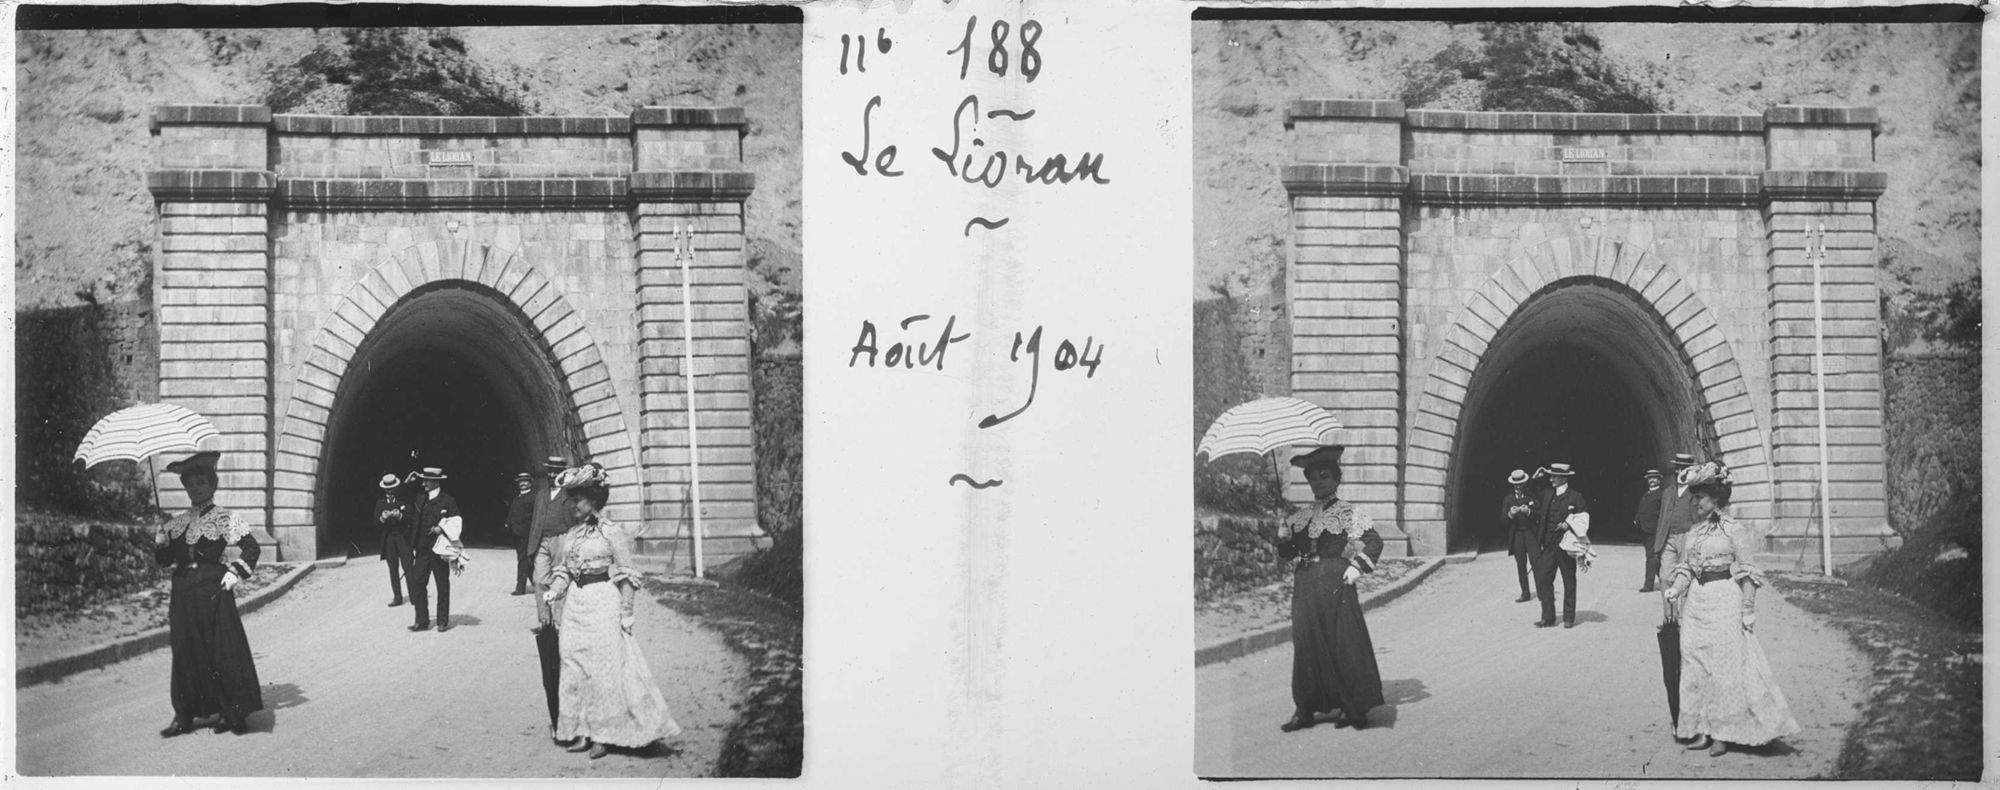 LE LIORAN
Nº 188
Le Lioran
Août 1904
LE LIORAN